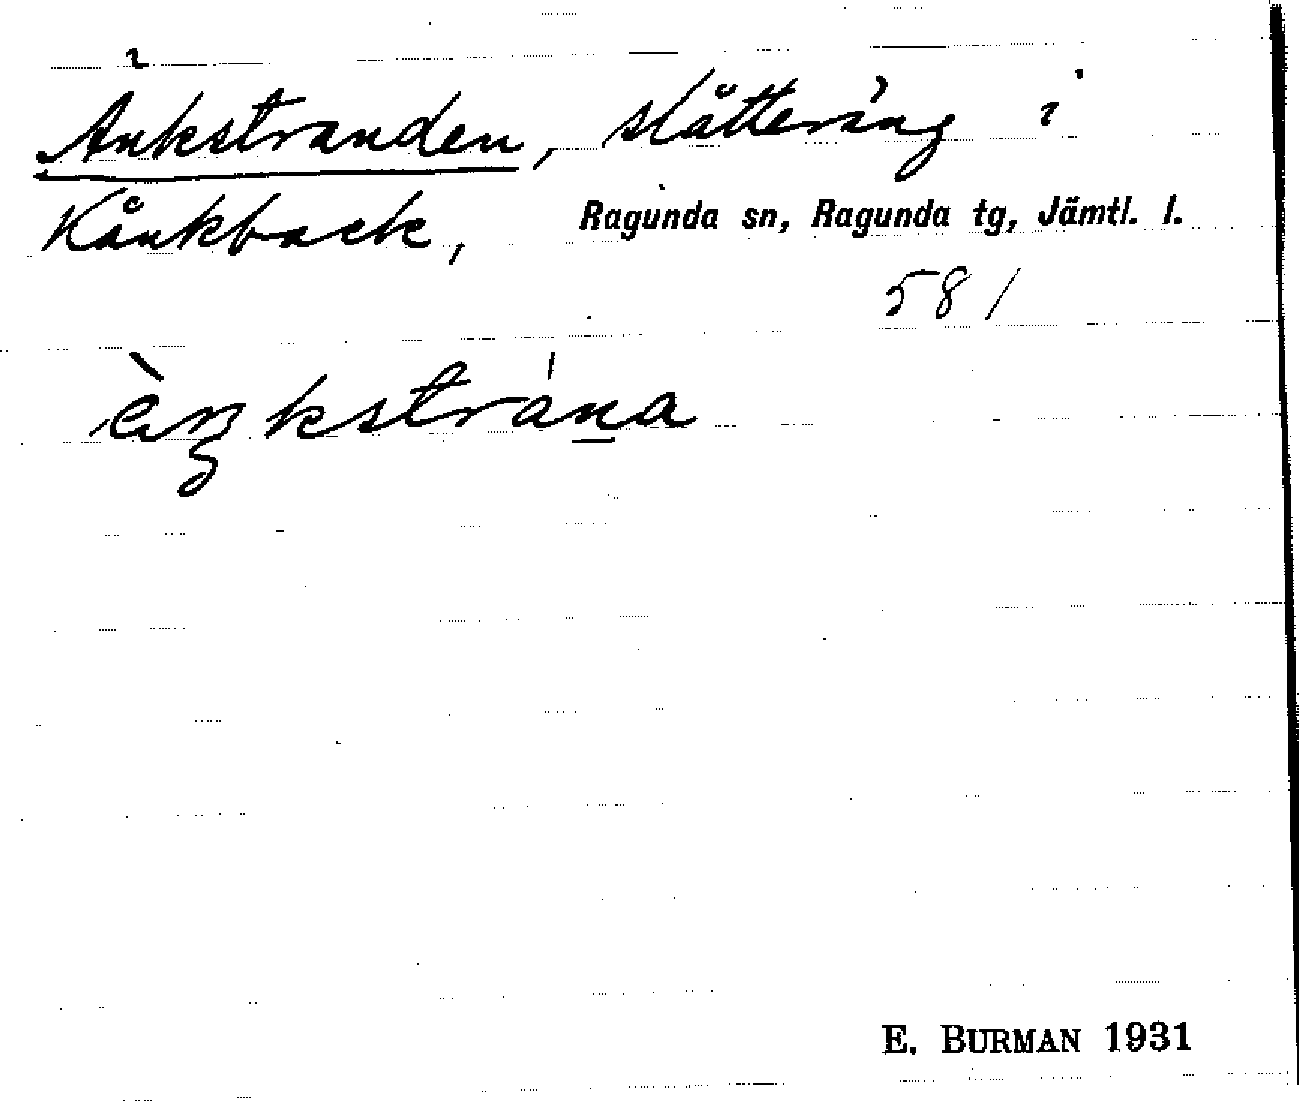 Änkstranden, slåtteräng i
Kånkback, Ragunda sn, Ragunda tg, Jämtl. l.
581
E. BURMAN 1931